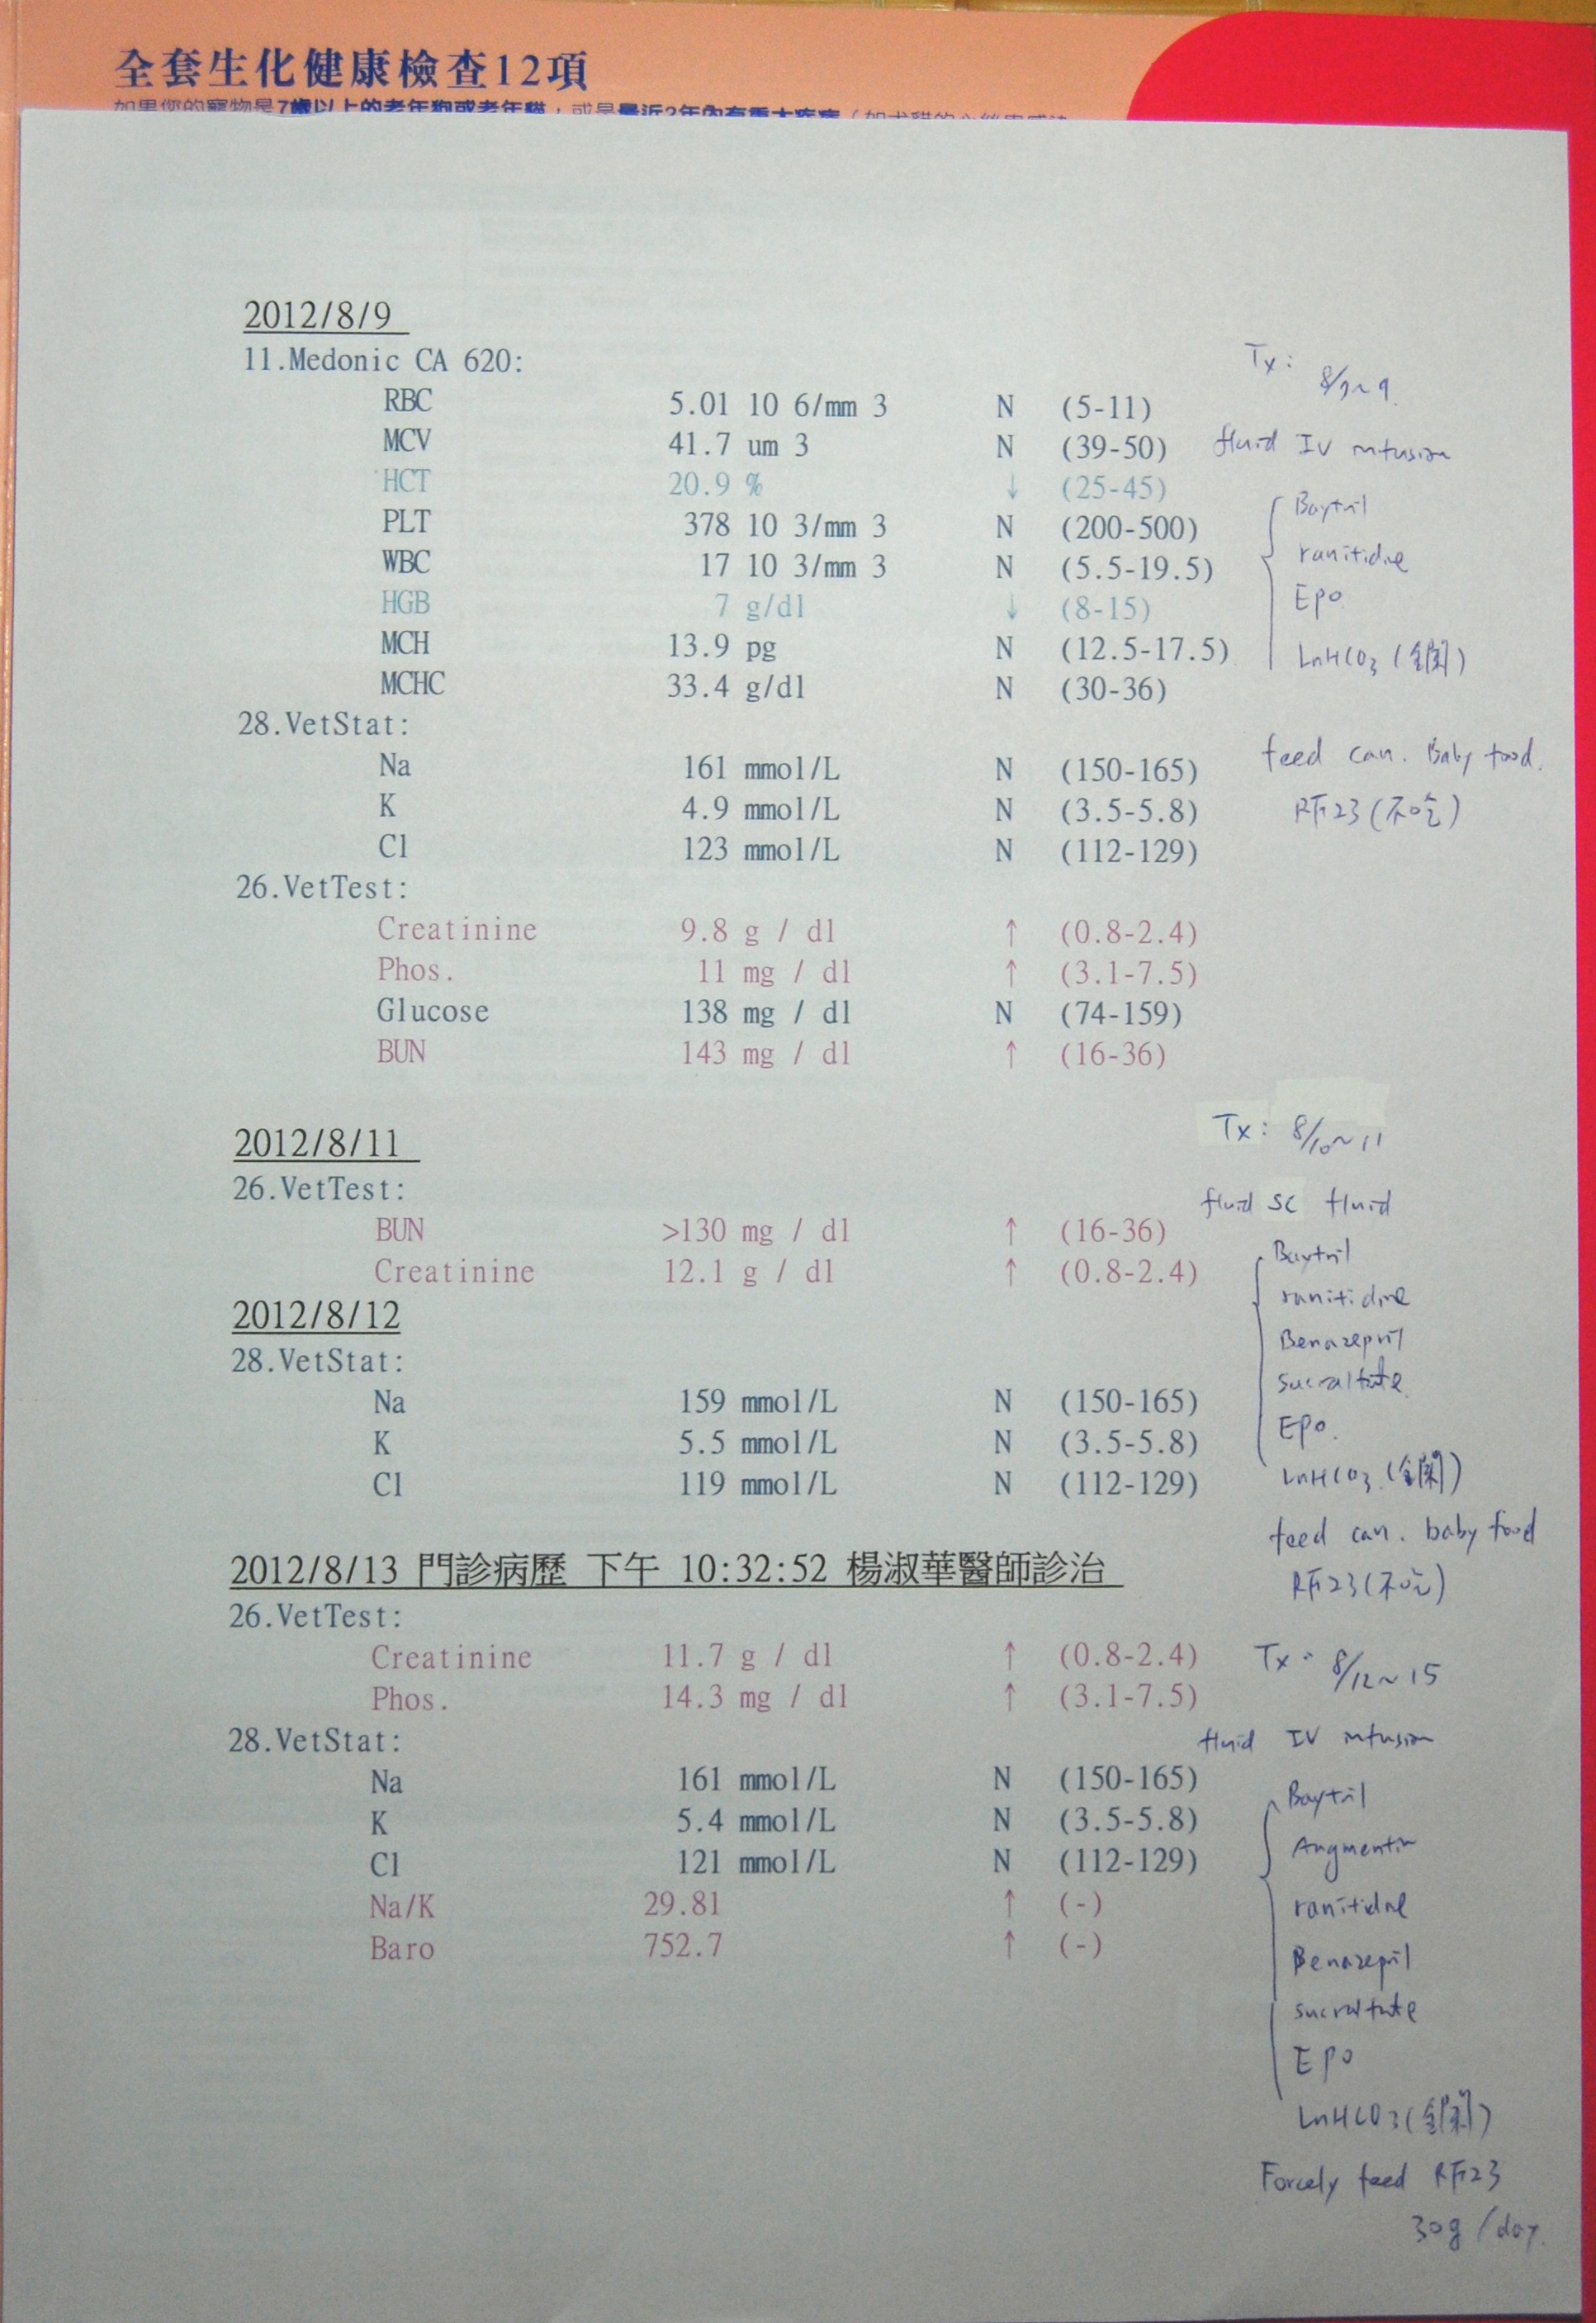 全套生化健康檢查12項
如果您的寵物是7歲以上的老年狗或老年貓，或是最近2年內有重大疾病
2012/8/9
11.Medonic CA 620:
RBC 5.01 10 6/mm 3 N (5-11)
MCV 41.7 um 3 N (39-50)
HCT 20.9 % ↓ (25-45)
PLT 378 10 3/mm 3 N (200-500)
WBC 17 10 3/mm 3 N (5.5-19.5)
HGB 7 g/dl ↓ (8-15)
MCH 13.9 pg N (12.5-17.5)
MCHC 33.4 g/dl N (30-36)
28.VetStat:
Na 161 mmol/L N (150-165)
K 4.9 mmol/L N (3.5-5.8)
Cl 123 mmol/L N (112-129)
26.VetTest:
Creatinine 9.8 g / dl ↑ (0.8-2.4)
Phos. 11 mg / dl ↑ (3.1-7.5)
Glucose 138 mg / dl N (74-159)
BUN 143 mg / dl ↑ (16-36)
Tx:
fluid IV infusion
Baytril
ranitidine
Epo
LnHCO3
feed can. Baby food.
RF23 (不吃)
2012/8/11
26.VetTest:
BUN >130 mg / dl ↑ (16-36)
Creatinine 12.1 g / dl ↑ (0.8-2.4)
2012/8/12
28.VetStat:
Na 159 mmol/L N (150-165)
K 5.5 mmol/L N (3.5-5.8)
Cl 119 mmol/L N (112-129)
Tx: 8/10~11
fluid SC fluid
Baytril
ranitidine
Benazepril
sucralfate
Epo.
LnHCO3
feed can. baby food
RF23 (不吃)
2012/8/13 門診病歷 下午 10:32:52 楊淑華醫師診治
26.VetTest:
Creatinine 11.7 g / dl ↑ (0.8-2.4)
Phos. 14.3 mg / dl ↑ (3.1-7.5)
28.VetStat:
Na 161 mmol/L N (150-165)
K 5.4 mmol/L N (3.5-5.8)
Cl 121 mmol/L N (112-129)
Na/K 29.81 ↑ (-)
Baro 752.7 ↑ (-)
Tx: 8/12~15
fluid IV infusion
Baytril
Augmentin
ranitidine
Benazepril
sucralfate
Epo
LnHCO3
Forcely feed RF23
30g/day.